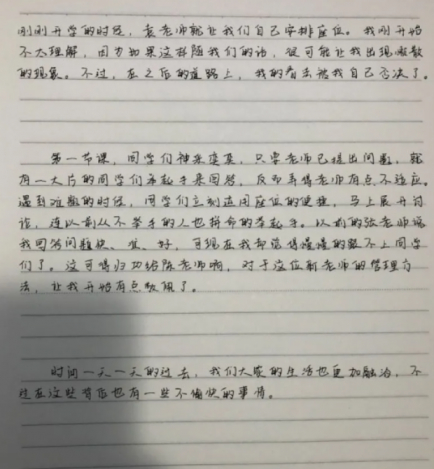 刚刚开学的时候，袁老师就让我们自己安排座位。我刚开始
不太理解，因为如果这样随我们的话，很可能让我出现懒散
的现象。不过，在之后的道路上，我的看法被我自己否决了。
第一节课，同学们神采奕奕，只要老师已提出问题，就
有一大片的同学们举起手来回答，反而弄得老师有点不适应。
遇到难题的时候，同学们立刻运用座位的便捷，马上展开讨
论，连以前从不举手的人也拼命的举起手。以前的张老师说
我回答问题快、准、好，可现在我却觉得慢慢的跟不上同学
们了。这可得归功给陈老师啊，对于这位新老师的管理方
法，让我开始有点敬佩了。
时间一天一天的过去，我们大家的生活也更加融洽，不
过在这些背后也有一些不愉快的事情。